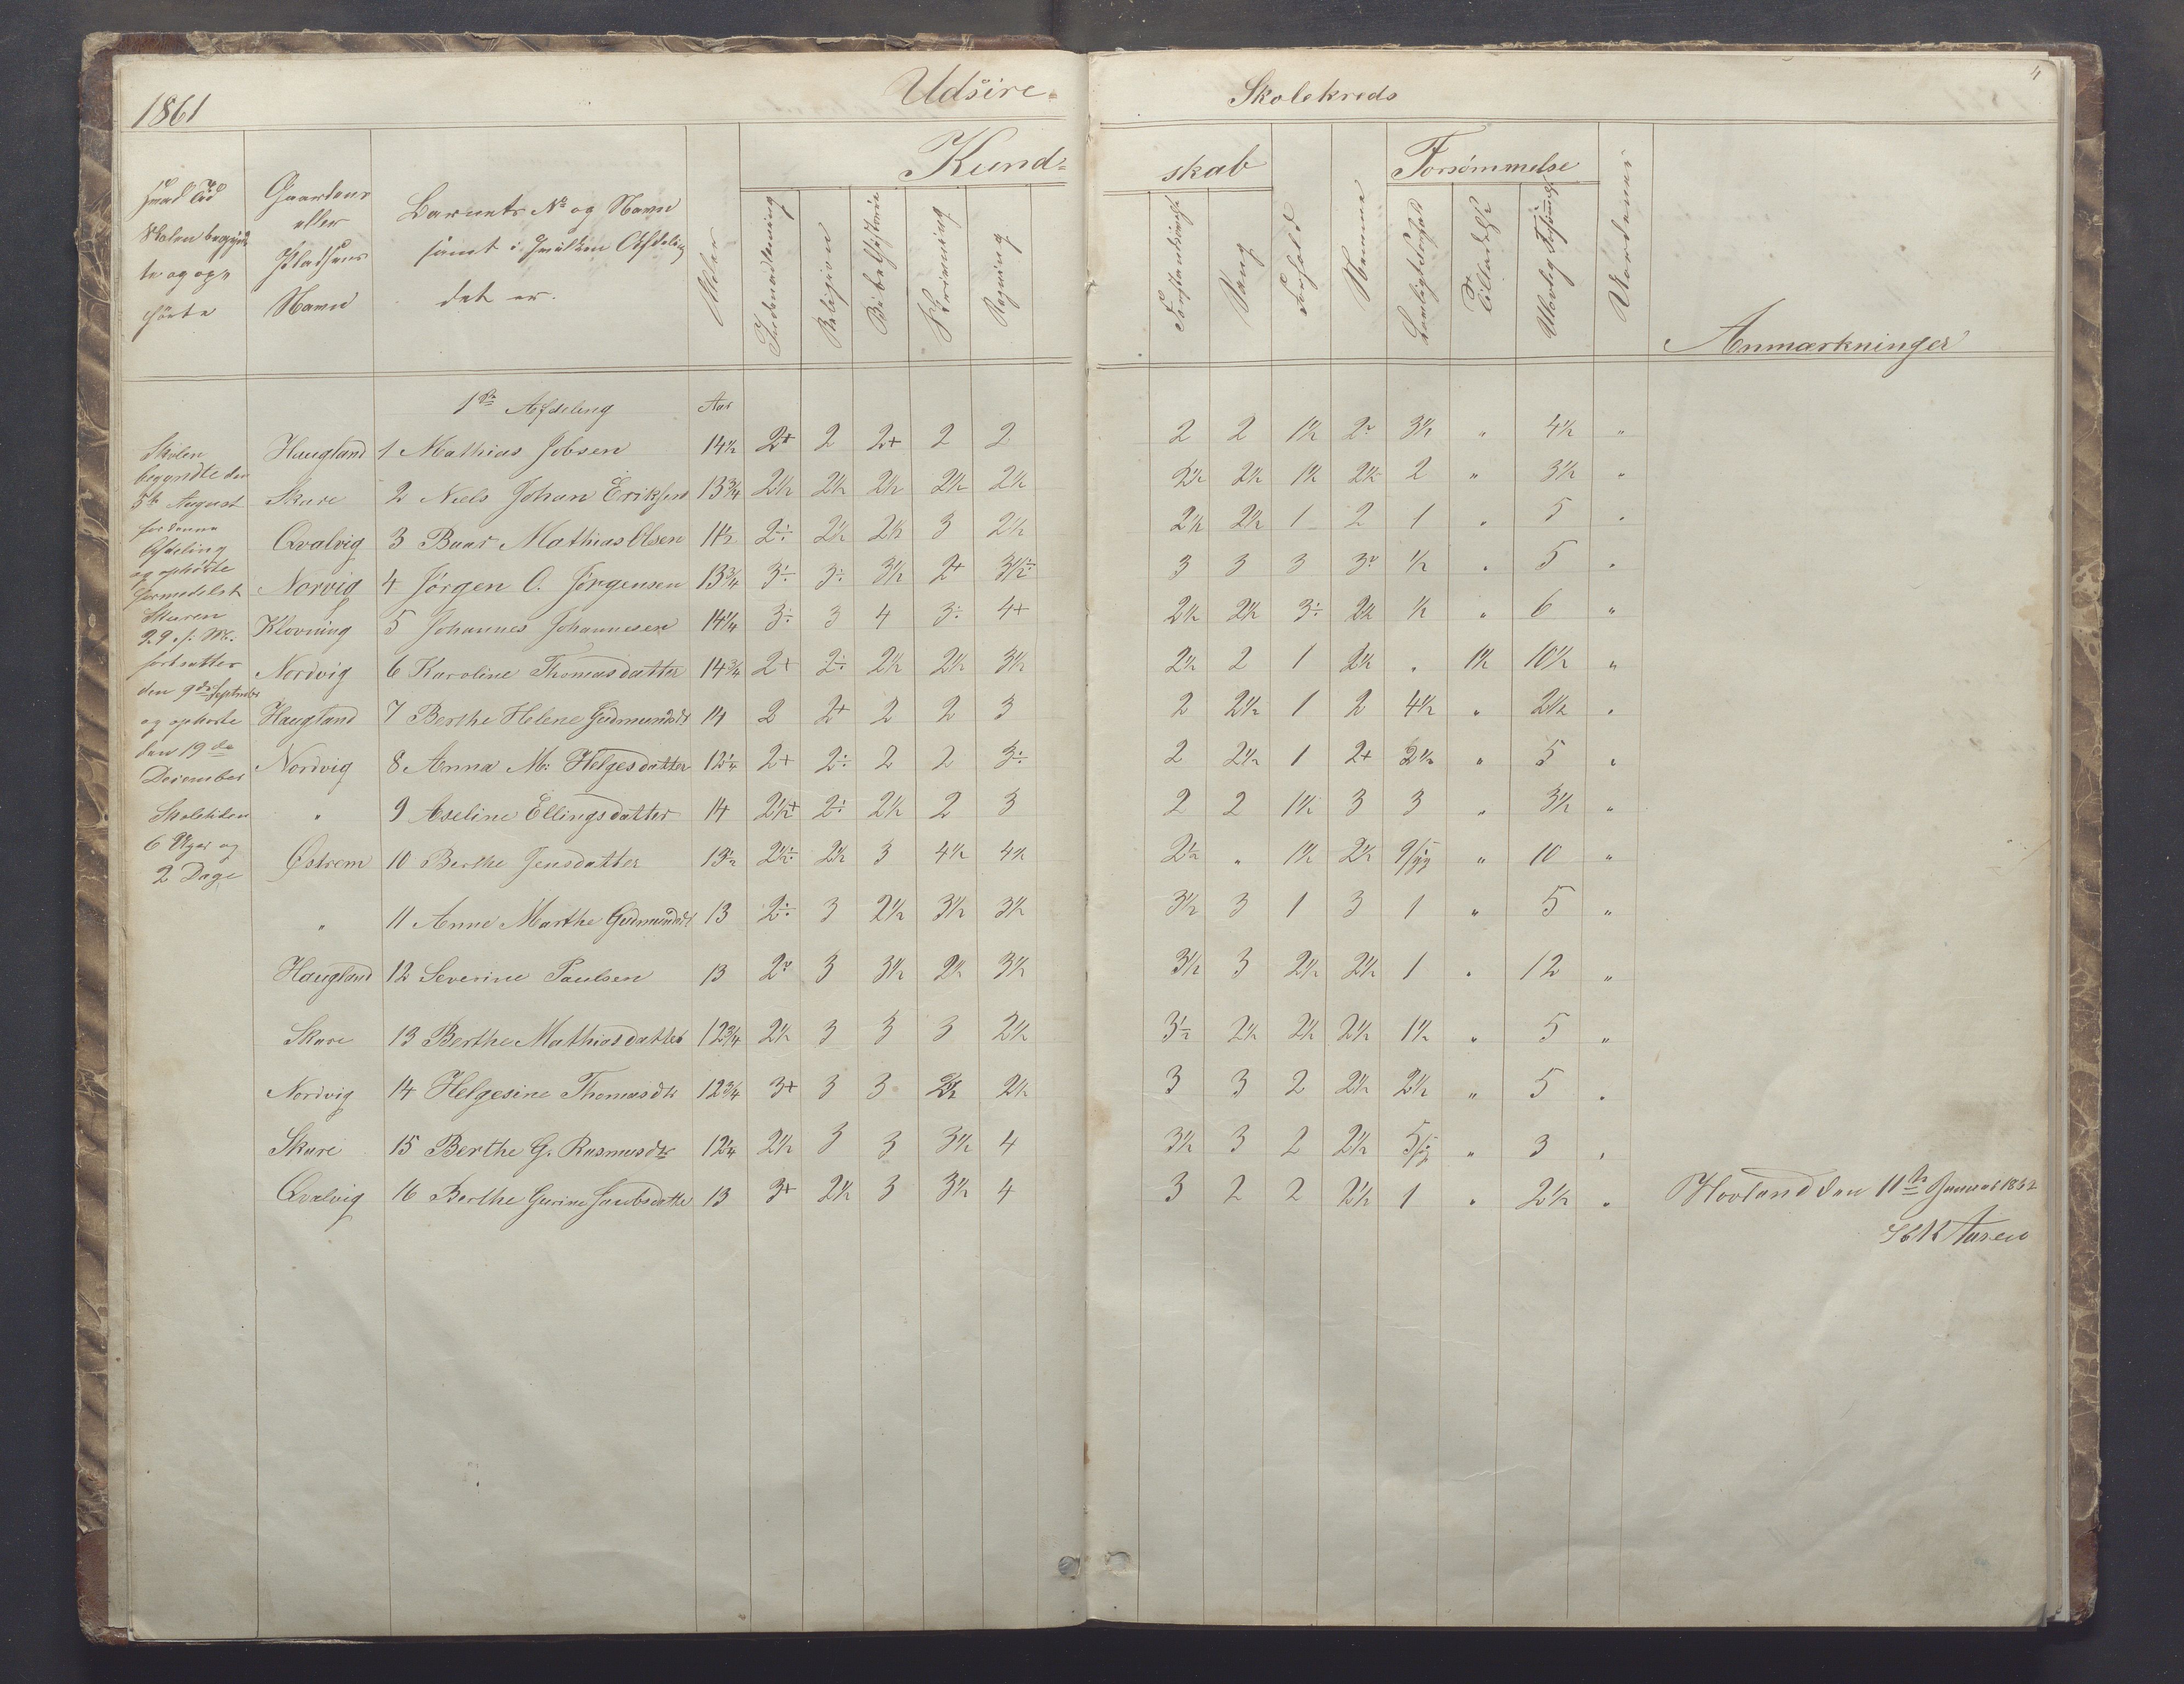 1861 Udsire Skolekreds 4
Hvad Tid Skolen begynd-
te og op-
hörte
Gaardens
eller
Pladsens
Navn
Barnets No og Navn
samt i hvilken Afdeling
det er.
Alder
Kund= skab
Indenadlæsning
Religion
Bibelhistorie
Skrivning
Regning
Sang
Forhold
Evne
Forsømmelse
Anmærkninger
1ste Afdeling Aar
Skolen
begyndte den
5te August
for denne
Afdeling
og ophörte
formedelst
29
fortsattes
den 9de September
og ophörte
den 19de
December
Skoletiden
6 Uger og
2 Dage
Haugland 1 Mathias Jobsen 14½ 2+ 2 2+ 2 2 2 2 1½ 3½ " 4½ "
Skare 2 Niels Johan Eriksen 13¾ 2½ 2½ 2½ 2½ 2½ 2½ 2½ 1½ 2½ 2 " 3½ "
Qvalvig 3 Baar Mathias Olsen 2÷ 2½ 2½ 3 2½ 2½ 2½ 1 2 1 " 5 "
Norvig 4 Jørgen O. Jørgensen 13¾ 3÷ 3÷ 3½ 2+ 3½÷ 3 3 3 ½ " 5 "
Klovning 5 Johannes Johannesen 14¼ 3÷ 3 4 3÷ 4+ 2½ 2½ 3÷ 2½ ½ " 6 "
Nordvig 6 Karoline Thomasdatter 14¾ 2+ 2÷ 2½ 2½ 3½ 2½ 2 1 2½ " 1½ 10½ "
Haugland 7 Berthe Helene Gudmundsdt 14 2 2+ 2 2 3 2 2½ 1 2 4½ " 2½ "
Nordvig 8 Anna M: Helgesdatter 12¼ 2+ 2÷ 2 2 3÷ 2 2½ 1 2+ 2½ " 5 "
" 9 Aseline Ellingsdatter 14 2½+ 2÷ 2½ 2 3 2 2 1½ 3 3 " 3½ "
Østrem 10 Berthe Jensdatter 13½ 2½÷ 2½ 3 4½ 4½ 2½ " 1½ 2½ " 10 "
" 11 Anne Marthe Gudmundsdt 13 2÷ 3 2½ 3½ 3½ 3½ 3 1 3 1 " 5 "
Haugland 12 Severine Paulsen 13 3 3½ 2½ 3½ 3½ 3 2½ 2½ 1 " 12 "
Skare 13 Berthe Mathiasdatter 12¾ 2½ 3 3 3 2½ 3½ 2½ 2½ 2½ 1½ " 5 "
Nordvig 14 Helgesine Thomasdtr 12¾ 3+ 3 3 2½ 2½ 3 3 2 2½ 2½ " 5 "
Skare 15 Berthe G. Rasmusdtr 12¼ 2½ 3 3 3½ 4 3½ 3 2 2½ " 3 "
Qvalvig 16 Berthe Gurine Jacobsdatter 13 3+ 2½ 3 3½ 4 3 2 2 2½ 1 " 2½ "
Hovland den 11te Januar 1862